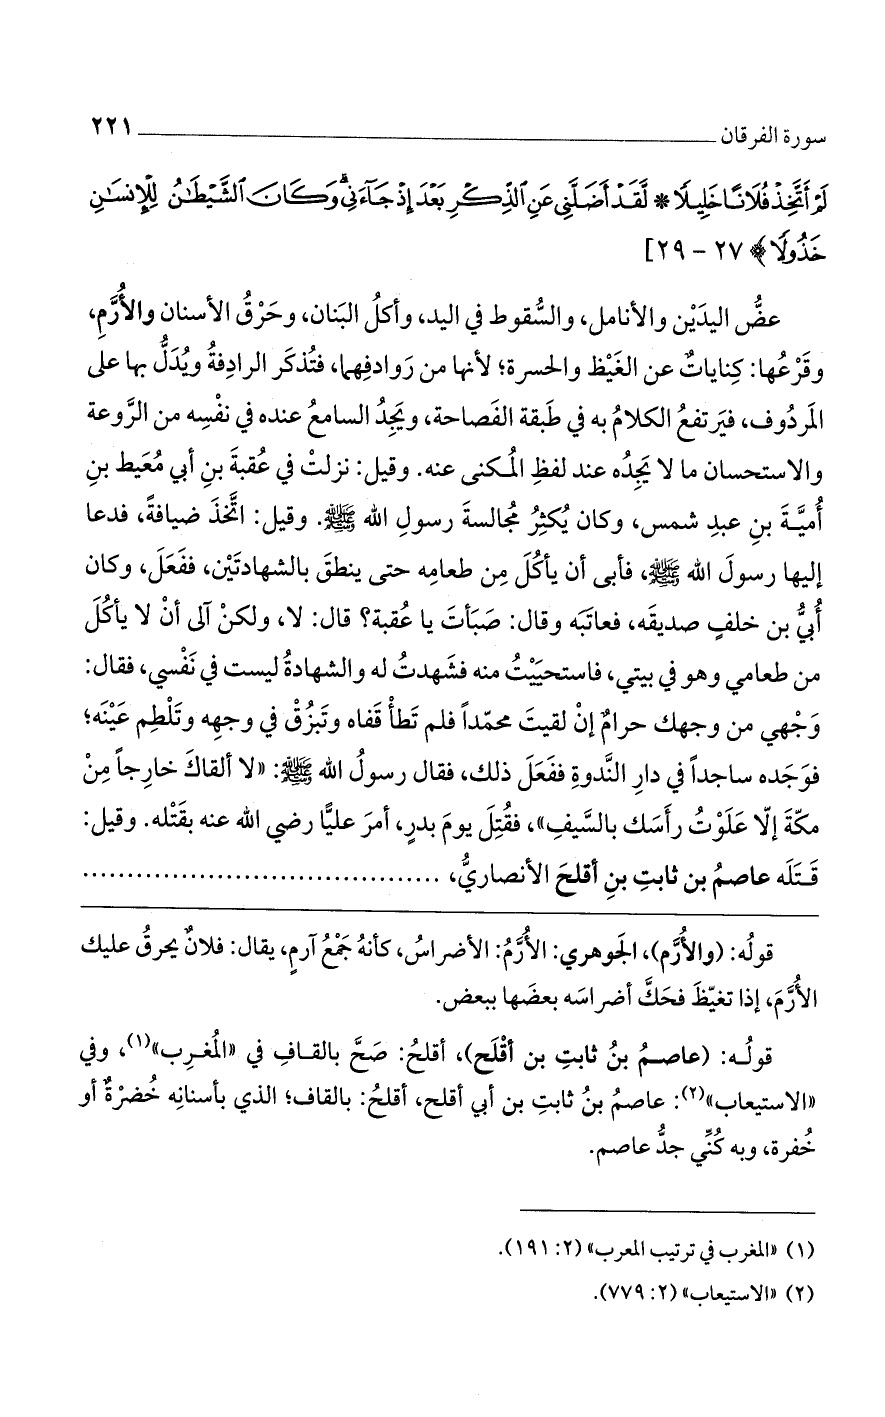 سورة الفرقان ٢٢١
لَمْ أَتَّخِذْ فُلَانًا خَلِيلًا * لَّقَدْ أَضَلَّنِى عَنِ ٱلذِّكْرِ بَعْدَ إِذْ جَآءَنِى ۗ وَكَانَ ٱلشَّيْطَٰنُ لِلْإِنسَٰنِ
خَذُولًا﴾ ٢٧ - ٢٩]
عضُّ اليدَيْن والأنامل، والسُّقوط في اليد، وأكلُ البَنان، وحَرْقُ الأسنان والأُرَّمِ،
وقَرْعُها: كِناياتٌ عن الغَيْظ والحسرة؛ لأنها من رَوادفِها، فتُذكَر الرادِفةُ ويُدَلُّ بها على
المَردُوف، فيَرتفعُ الكلامُ به في طَبقة الفَصاحة، ويَجِدُ السامعُ عنده في نفْسِه من الرَّوعة
والاستحسان ما لا يَجِدُه عند لفظِ المُكنى عنه. وقيل: نزلتْ في عُقبةَ بنِ أبي مُعَيط بنِ
أُميَّةَ بنِ عبدِ شمس، وكان يُكثِرُ مُجالسةَ رسولِ الله ﷺ. وقيل: اتَّخذَ ضيافةً، فدعا
إليها رسولَ الله ﷺ، فأبى أن يأكُلَ مِن طعامِه حتى ينطقَ بالشهادتَيْن، ففَعَلَ، وكان
أُبيُّ بن خلفٍ صديقَه، فعاتَبَه وقال: صَبَأتَ يا عُقبة؟ قال: لا، ولكنْ آلى أنْ لا يأكُلَ
من طعامي وهو في بيتي، فاستحيَيْتُ منه فشَهدتُ له والشهادةُ ليست في نَفْسي، فقال:
وَجْهي من وجهك حرامٌ إنْ لقيتَ محمّداً فلم تَطأْ قَفاه وتَبزُقْ في وجهِه وتَلْطِم عَيْنَه؛
فوَجَده ساجداً في دارِ النَّدوةِ ففَعَلَ ذلك، فقال رسولُ الله ﷺ: «لا ألقاكَ خارجاً مِنْ
مكّةَ إلّا عَلَوْتُ رأسَك بالسَّيفِ»، فقُتِلَ يومَ بدرٍ، أمرَ عليًّا رضي الله عنه بقَتْله. وقيل:
قَـتَلَه عاصمُ بن ثابتِ بنِ أقلحَ الأنصاريُّ، ........................................
قولُه: (والأُرَّم)، الجَوهري: الأُرَّمُ: الأضراسُ، كأنهُ جَمْعُ آرمٍ، يقال: فلانٌ يحرقُ عليك
الأُرَّمَ، إذا تغيّظَ فحَكَّ أضراسَه بعضَها ببعض.
قولُـه: (عاصـمُ بنُ ثابتِ بن أقْلَح)، أقلحُ: صَحَّ بالقـافِ في «المُغـرِب»(١)، وفي
«الاستيعاب»(٢): عاصمُ بنُ ثابتِ بن أبي أقلح، أقلحُ: بالقاف؛ الذي بأسنانِه خُضرْةٌ أو
خُفرة، وبه كُنِّي جدُّ عاصم.
(١) «المغرب في ترتيب المعرب» (٢: ١٩١).
(٢) «الاستيعاب» (٢: ٧٧٩).